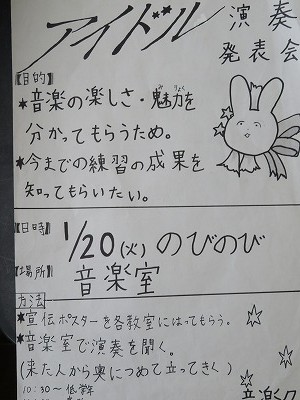 アイドル 演奏
発表会
【目的】
*音楽の楽しさ・魅力を
りょく
分かってもらうため。
*今までの練習の成果を
知ってもらいたい。
【日時】 1/20(火) のびのび
【場所】 音楽室
方法
*宣伝ポスターを各教室にはってもらう。
*音楽室で演奏を聞く。
(来た人から奥につめて立ってきく)
10:30〜低学年
音楽ク